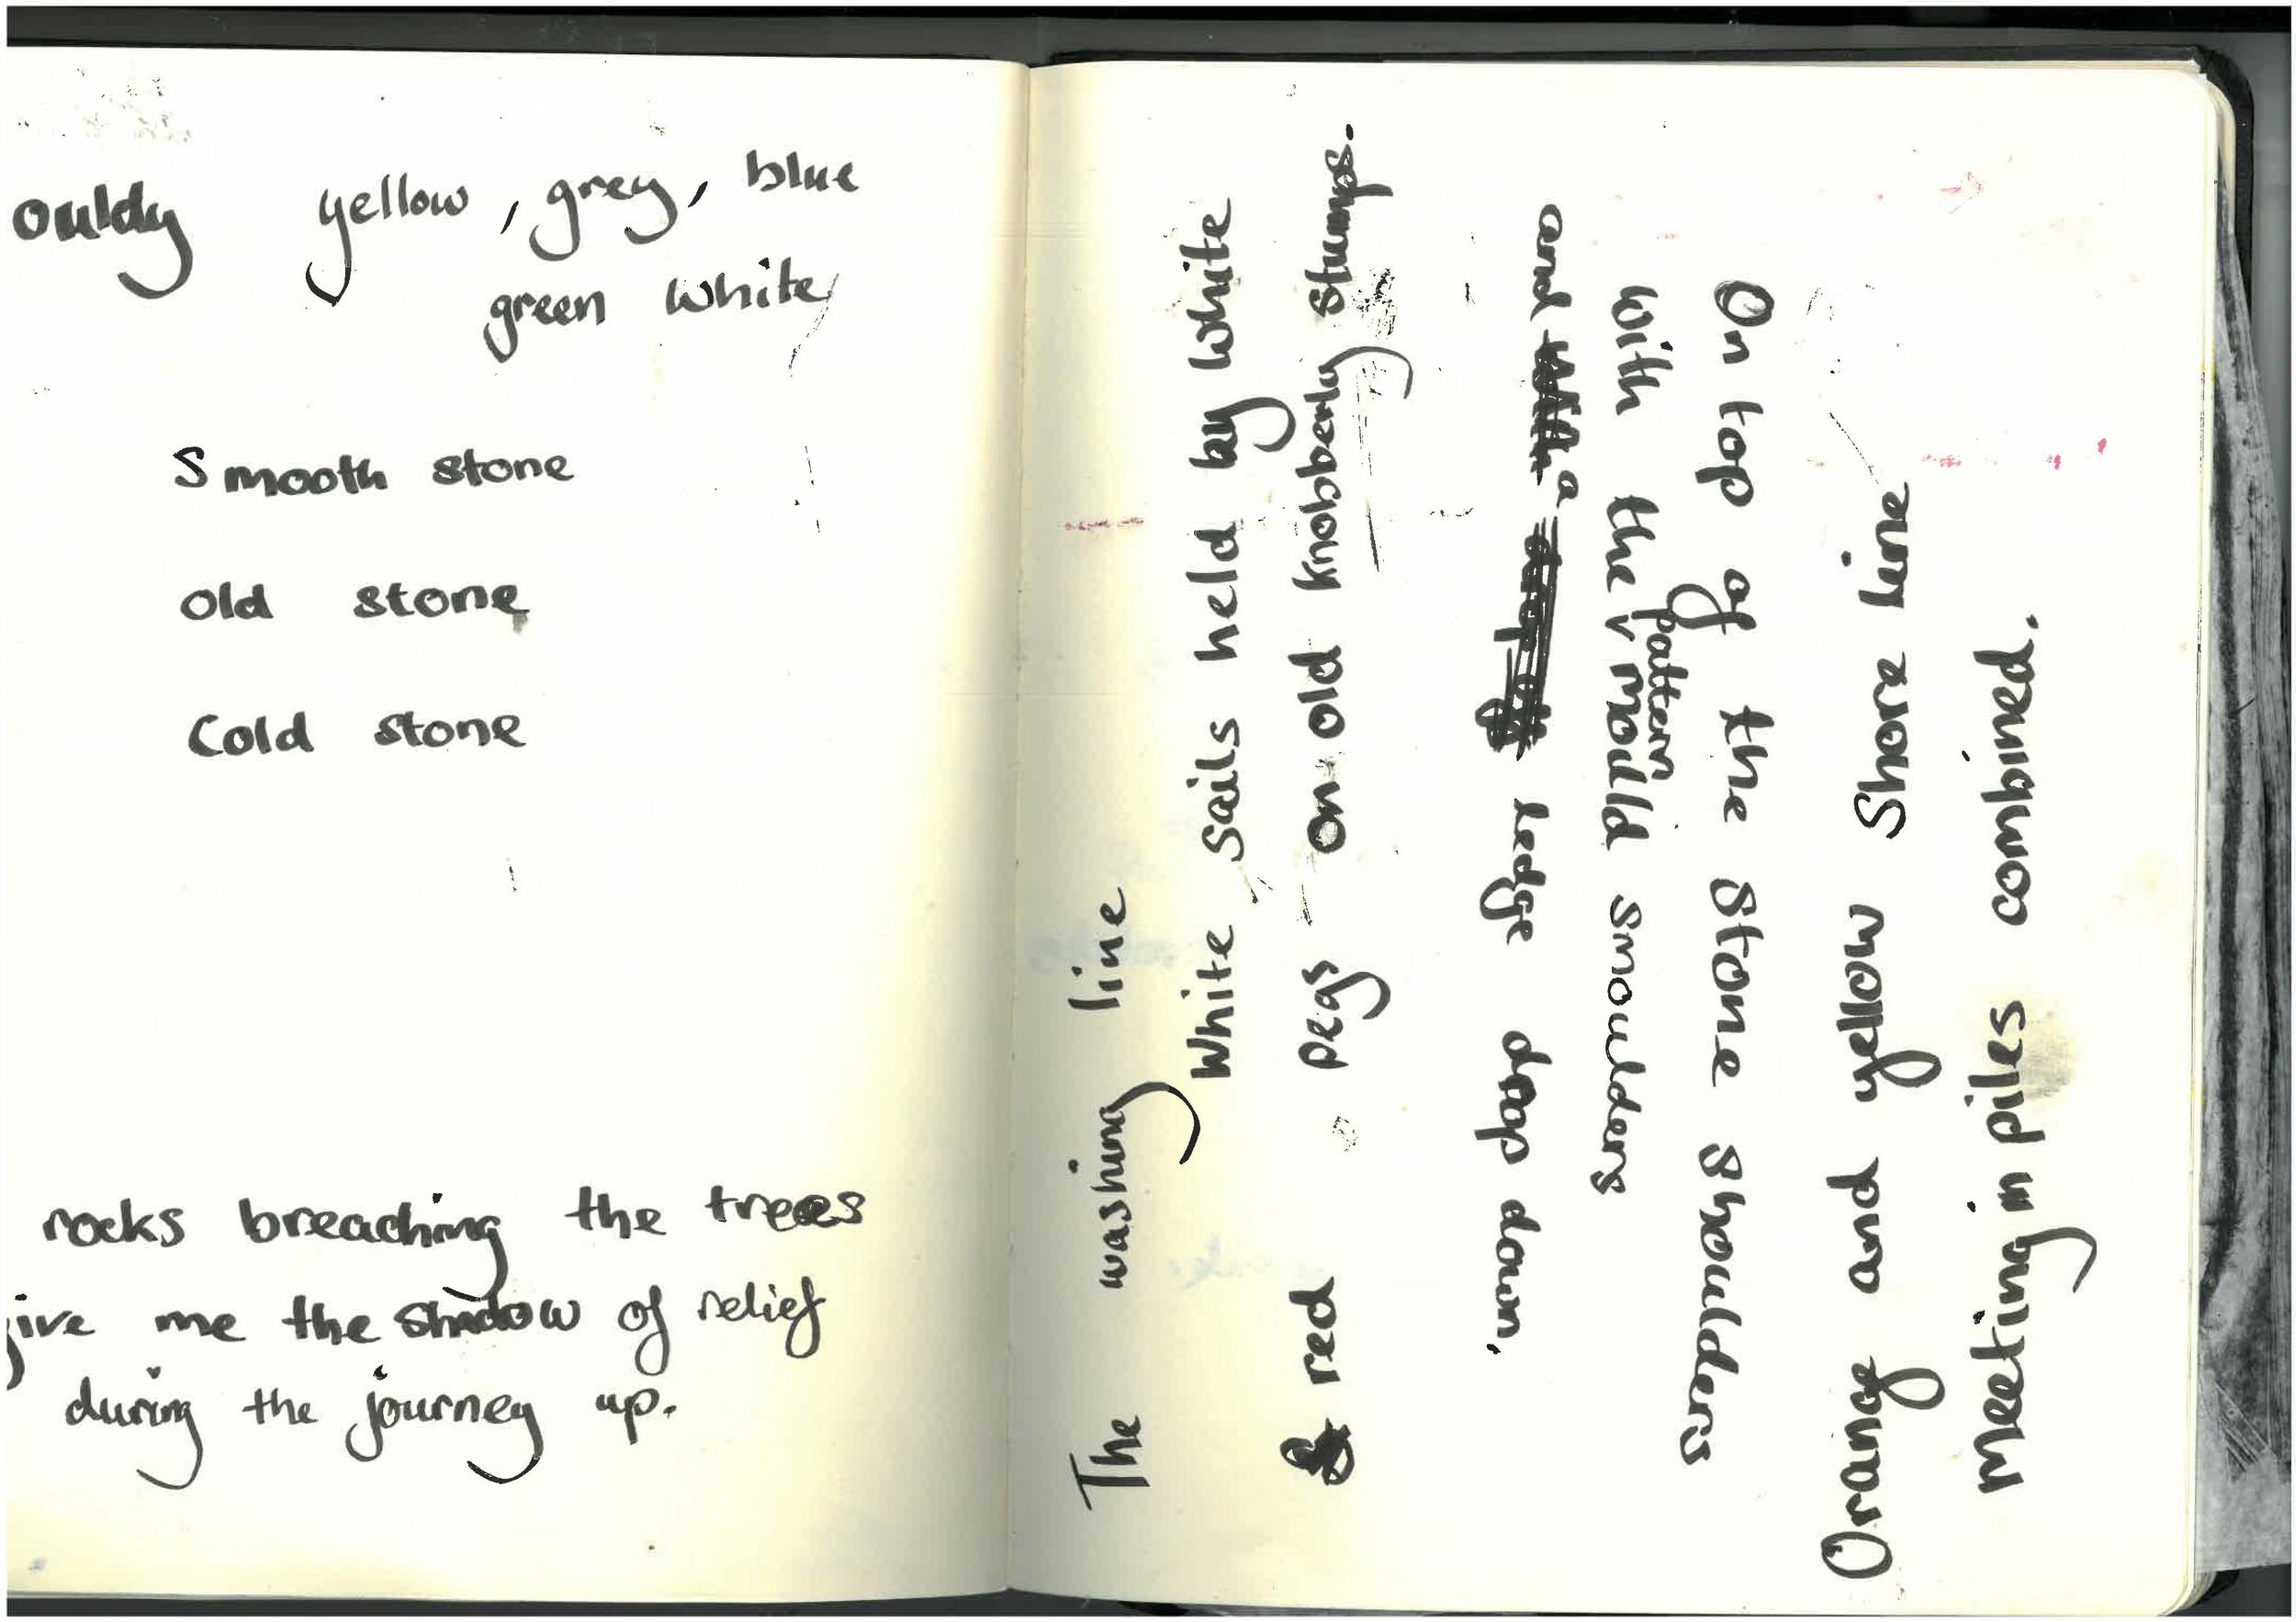 ouldy yellow, grey, blue
green white
Smooth stone
old stone
Cold stone
rocks breaching the trees
ive me the shadow of relief
during the journey up.
The washing line
White sails held by white
& red pegs on old knobberly stumps.
On top of the stone shoulders
with the pattern mould smoulders
and a ledge drop down.
Orange and yellow Shore line
Meeting in piles combined.